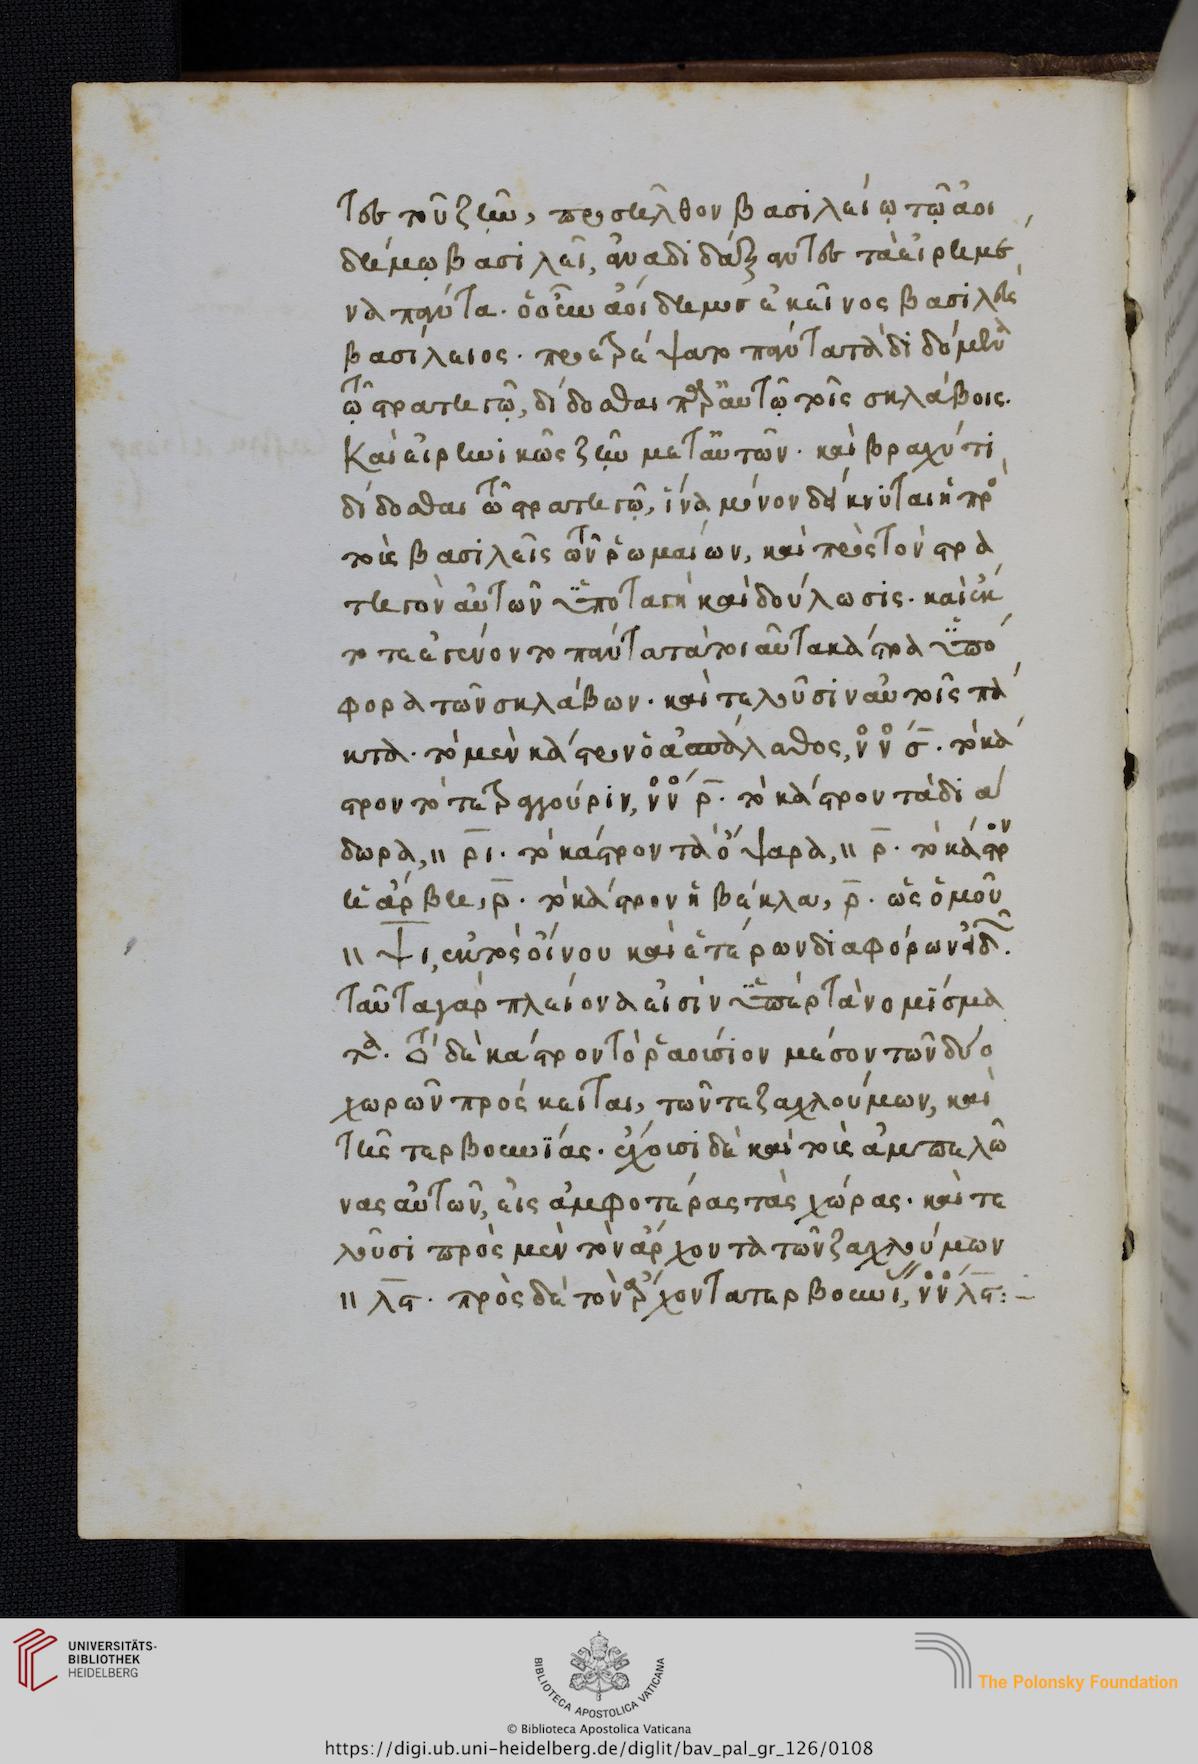 τες τοῦ ζῆν, προσῆλθον βασιλείῳ τῷ ἀοι
δήμῳ βασιλεῖ, ἀναδιδάξαντες τὰ εἰρημέ
να πάντα. ὁ οὖν ἀοίδημος ἐκεῖνος βασιλεὺς
βασίλειος. προετρέψατο πάντα τὰ διδόμενα
τῷ στρατηγῷ, δίδοσθαι παρ' αὐτῶν τοῖς σκλάβοις.
Καὶ εἰρηνικῶς ζῆν μετ' αὐτῶν. καὶ βραχύ τι
δίδοσθαι τῷ στρατηγῷ, ἵνα μόνον δείκνυται ἡ πρὸς
τοὺς βασιλεῖς τῶν ῥωμαίων, καὶ πρὸς τὸν στρα
τηγὸν αὐτῶν ὑποταγὴ καὶ δούλωσις. καὶ ἔκ
τοτε ἐγένοντο πάντα τὰ τοιαῦτα κάστρα ὑπό
φορα τῶν σκλάβων. καὶ τελοῦσιν αὐτοῖς πά
κτα. τὸ μὲν κάστρον ὁ ἀσπάλαθος, νν σ. τὸ κά
στρον τὸ τετραγγούριν, νν ρ. τὸ κάστρον τὰ διά
δωρα, νν ρι. τὸ κάστρον τὰ ὄψαρα, νν ρ. τὸ κάστρον
ἡ ἄρβη, ρ. τὸ κάστρον ἡ βέκλα, ρ. ὡς ὁμοῦ
νν ψι, ἐκτὸς οἴνου καὶ ἑτέρων διαφόρων εἰδῶν.
Ταῦτα γὰρ πλείονα εἰσὶν ὑπὲρ τὰ νομίσμα
τα. Τὸ δὲ κάστρον τὸ ῥαούσιον μέσον τῶν δύο
χωρῶν πρόσκειται, τῶν τε ζαχλούμων, καὶ
τῆς τερβουνίας. ἔχουσι δὲ καὶ τοὺς ἀμπελῶ
νας αὐτῶν, εἰς ἀμφοτέρας τὰς χώρας. καὶ τε
λοῦσι πρὸς μὲν τὸν ἄρχοντα τῶν ζαχλούμων
νν λϛ. πρὸς δὲ τὸν ἄρχοντα τερβουνίας, νν λϛ:-
UNIVERSITÄTS-
BIBLIOTHEK
HEIDELBERG
BIBLIOTECA APOSTOLICA VATICANA
The Polonsky Foundation
© Biblioteca Apostolica Vaticana
https://digi.ub.uni-heidelberg.de/diglit/bav_pal_gr_126/0108